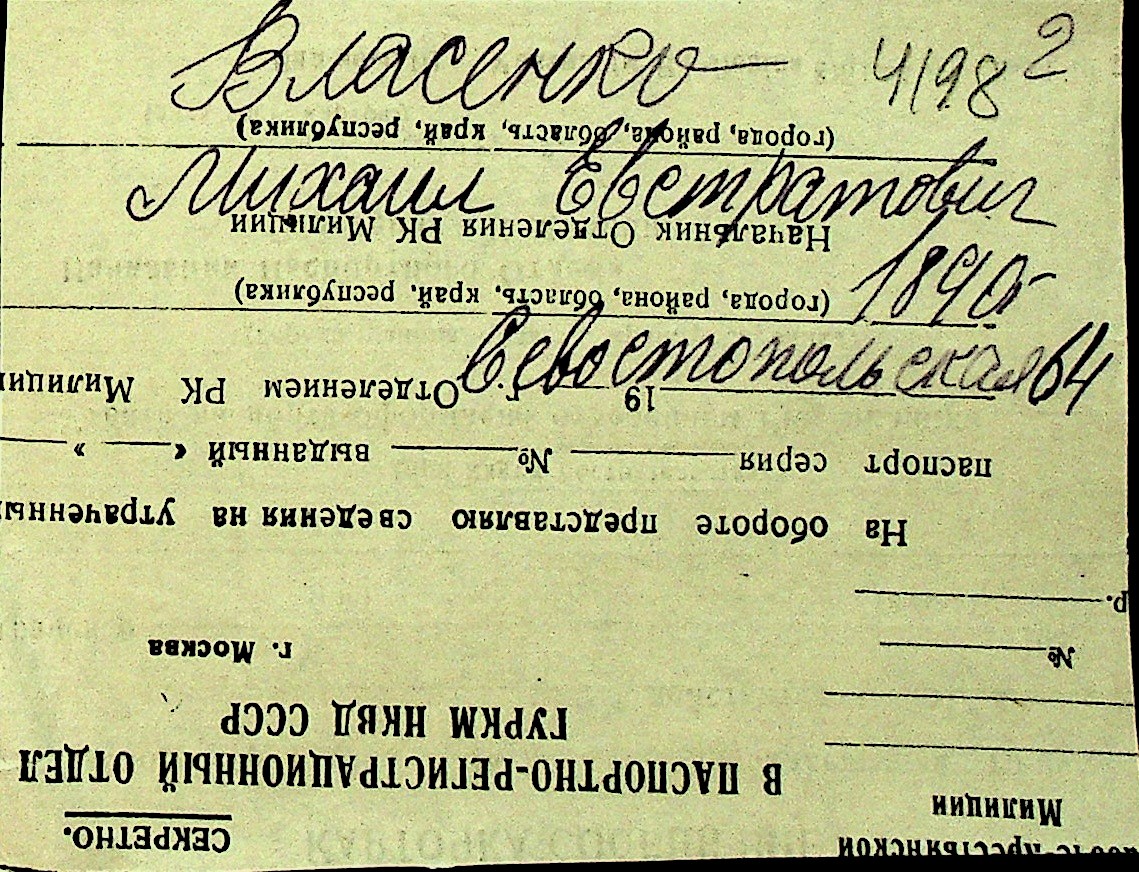 Власенко 4198 2
Михаил Евстратович
1890г
Севостопольская 64
СЕКРЕТНО.
В ПАСПОРТНО-РЕГИСТРАЦИОННЫЙ ОТДЕЛ
ГУРКМ НКВД СССР
г. Москва
Милиции
№
р.
На обороте представляю сведения на утраченный
паспорт серия № выданный « »
19 г. Отделением РК Милиции
(города, района, область, край, республика)
Начальник Отделения РК Милиции
(города, района, область, край, республика)